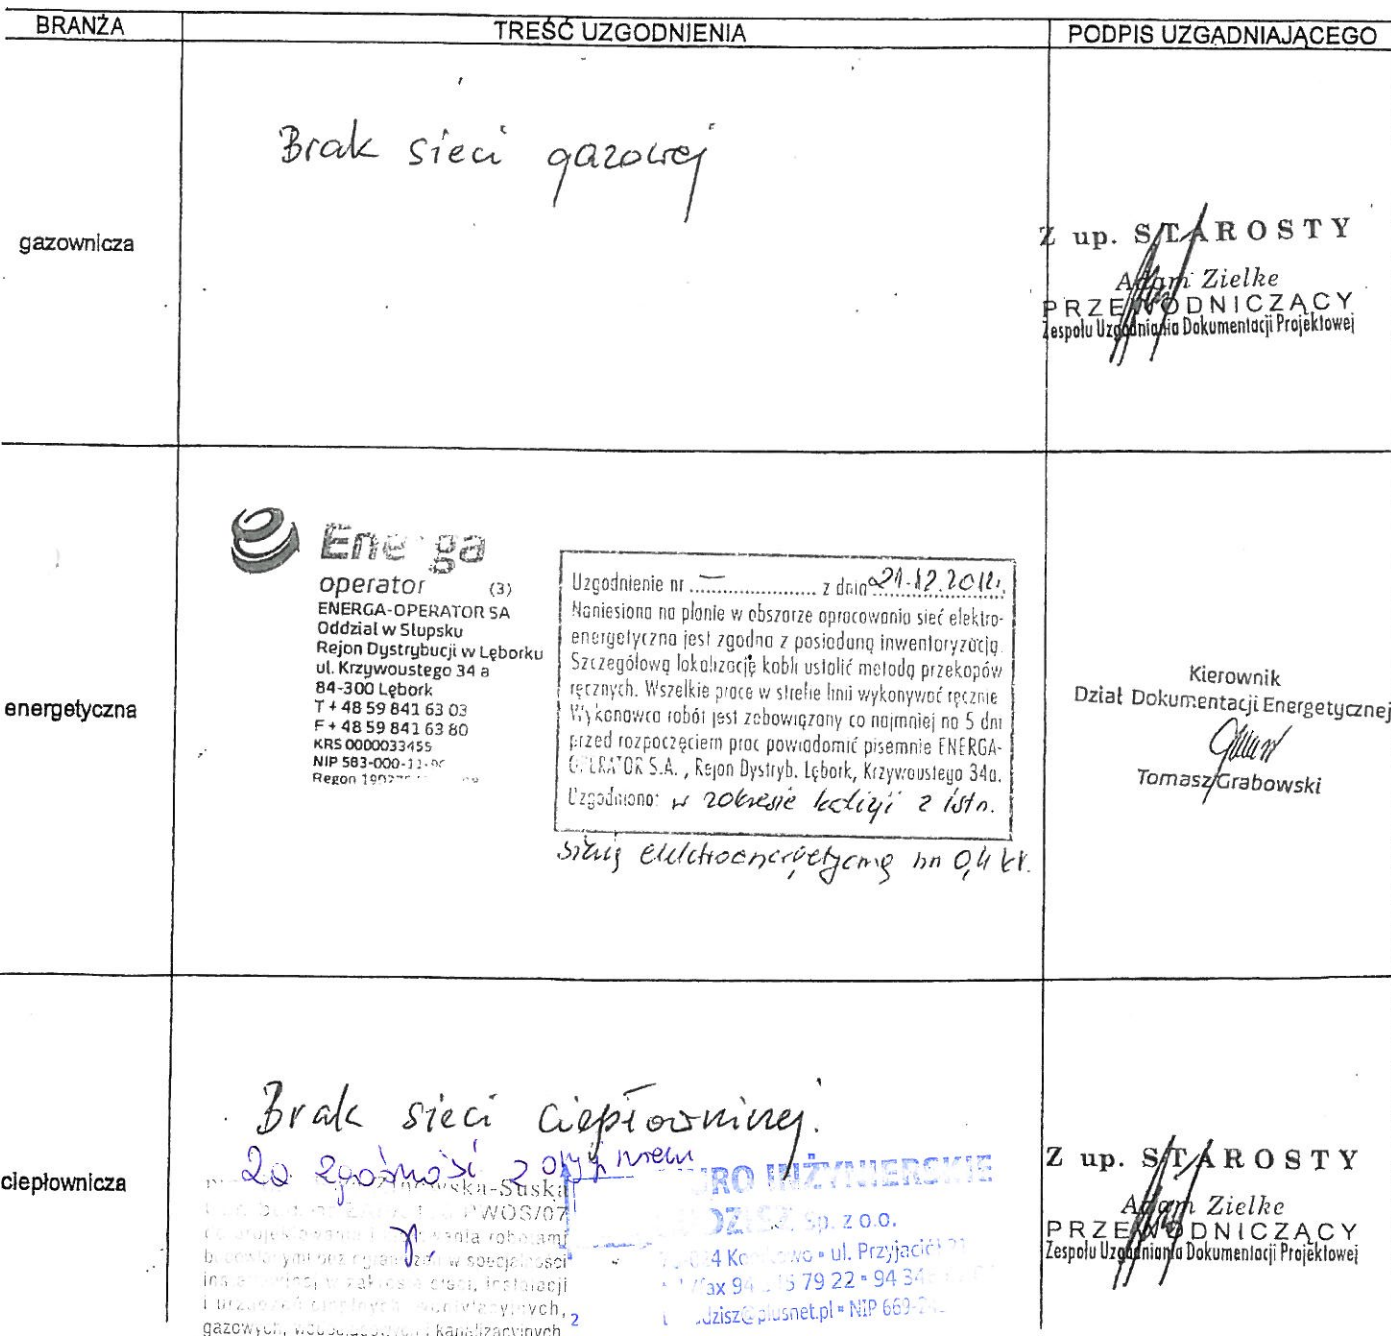 BRANŻA TREŚĆ UZGODNIENIA PODPIS UZGADNIAJĄCEGO
Brak sieci gazowej
gazownicza
Z up. STAROSTY
Adam Zielke
PRZEWODNICZĄCY
Zespołu Uzgadniania Dokumentacji Projektowej
energetyczna
Energa
operator (3)
ENERGA-OPERATOR SA
Oddział w Słupsku
Rejon Dystrybucji w Lęborku
ul. Krzywoustego 34 a
84-300 Lębork
T + 48 59 841 63 03
F + 48 59 841 63 80
KRS 0000033455
NIP 583-000-11-
Regon
Uzgodnienie nr – z dnia 21.12.2012r.
Naniesiona na planie w obszarze opracowania sieć elektro-
energetyczna jest zgodna z posiadaną inwentaryzacją.
Szczegółową lokalizację kabli ustalić metodą przekopów
ręcznych. Wszelkie prace w strefie linii wykonywać ręcznie
Wykonawca robót jest zobowiązany co najmniej na 5 dni
przed rozpoczęciem prac powiadomić pisemnie ENERGA-
OPERATOR S.A., Rejon Dystryb. Lębork, Krzywoustego 34a.
Uzgodniono: w zakresie kolizji z istn.
siecią elektroenergetyczną nn 0,4 kV.
Kierownik
Dział Dokumentacji Energetycznej
Tomasz Grabowski
ciepłownicza
Brak sieci ciepłowniczej.
Za zgodność z oryginałem
-Suska
PWOS/07
robotami
w specjalności
sieci, instalacji
i urządzeń cieplnych, wentylacyjnych,
gazowych, wodociągowych i kanalizacyjnych
BIURO INŻYNIERSKIE
Sp. z o.o.
ul. Przyjaciół
fax 94 79 22 • 94 34
dzisz@plusnet.pl • NIP 669-
2
Z up. STAROSTY
Adam Zielke
PRZEWODNICZĄCY
Zespołu Uzgadniania Dokumentacji Projektowej